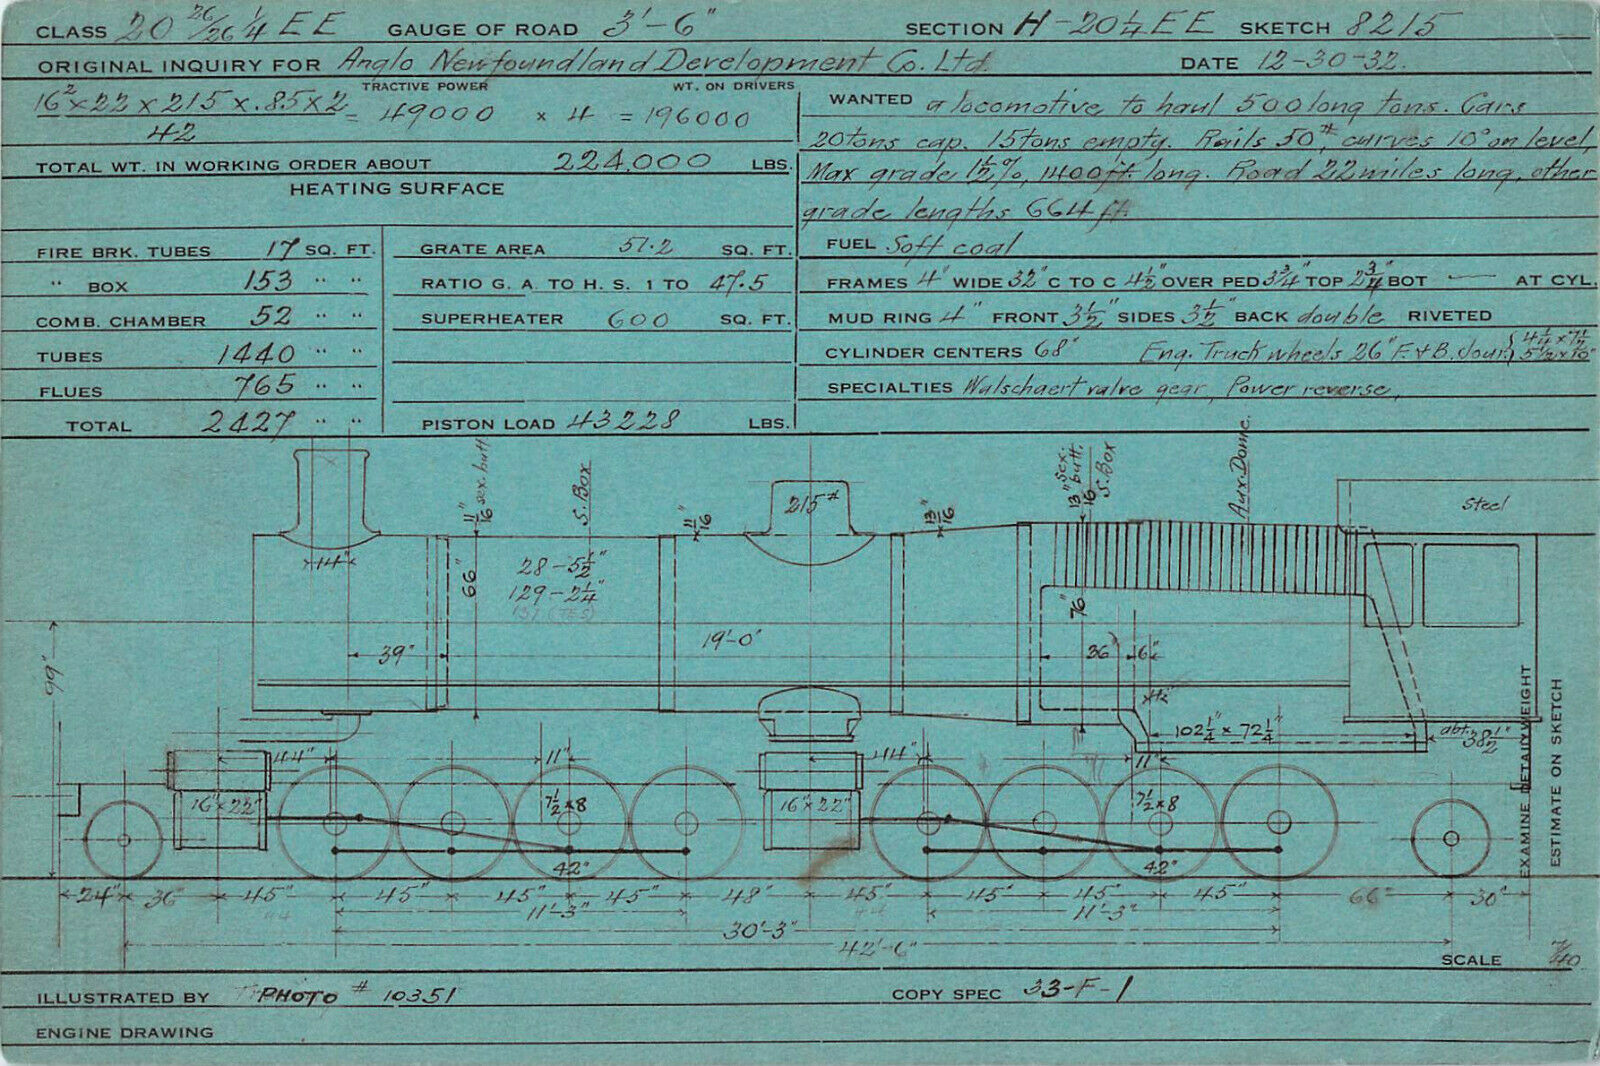 CLASS 20 26/26 1/4 EE GAUGE OF ROAD 3'-6" SECTION H-20 1/4 EE SKETCH 8215
ORIGINAL INQUIRY FOR Anglo Newfoundland Development Co. Ltd. DATE 12-30-32.
TRACTIVE POWER WT. ON DRIVERS
16² x 22 x 215 x .85 x 2 = 49000 x 4 = 196000
42
TOTAL WT. IN WORKING ORDER ABOUT 224,000 LBS.
WANTED a locomotive to haul 500 long tons. Cars
20 tons cap. 15 tons empty. Rails 50#, curves 10° on level,
Max grade 1 1/2 %, 1400 ft. long. Road 22 miles long, other
grade lengths 664 ft.
HEATING SURFACE
FIRE BRK. TUBES 17 SQ. FT.
" BOX 153 " "
COMB. CHAMBER 52 " "
TUBES 1440 " "
FLUES 765 " "
TOTAL 2427 " "
GRATE AREA 51.2 SQ. FT.
RATIO G. A. TO H. S. 1 TO 47.5
SUPERHEATER 600 SQ. FT.
PISTON LOAD 43228 LBS.
FUEL Soft coal
FRAMES 4" WIDE 32" C TO C 4 1/2" OVER PED 3 3/4" TOP 2 3/4" BOT — AT CYL.
MUD RING 4" FRONT 3 1/2" SIDES 3 1/2" BACK double RIVETED
CYLINDER CENTERS 68" Eng. Truck wheels 26" F. & B. Jour. { 4 1/4 x 7 1/2 5 1/2 x 10"
SPECIALTIES Walschaert valve gear, Power reverse,
11/16" sex. butt
S. Box
11/16"
215#
13/16"
13/16" sex. butt.
S. Box
Aux. Dome.
Steel
14"
66"
28 - 5 1/2"
129 - 2 1/4"
76"
99"
39"
19'-0"
36"
6"
4 1/2"
102 1/4" x 72 1/4"
abt. 38 1/2"
44"
11"
44"
11"
16" x 22"
7 1/2 x 8
16" x 22"
7 1/2" x 8
42"
42"
24" 36" 45" 45" 45" 45" 48" 45" 45" 45" 45" 66" 30"
11'-3" 11'-3"
30'-3"
42'-6"
EXAMINE DETAIL WEIGHT
ESTIMATE ON SKETCH
SCALE
ILLUSTRATED BY PHOTO # 10351 COPY SPEC 33-F-1
ENGINE DRAWING